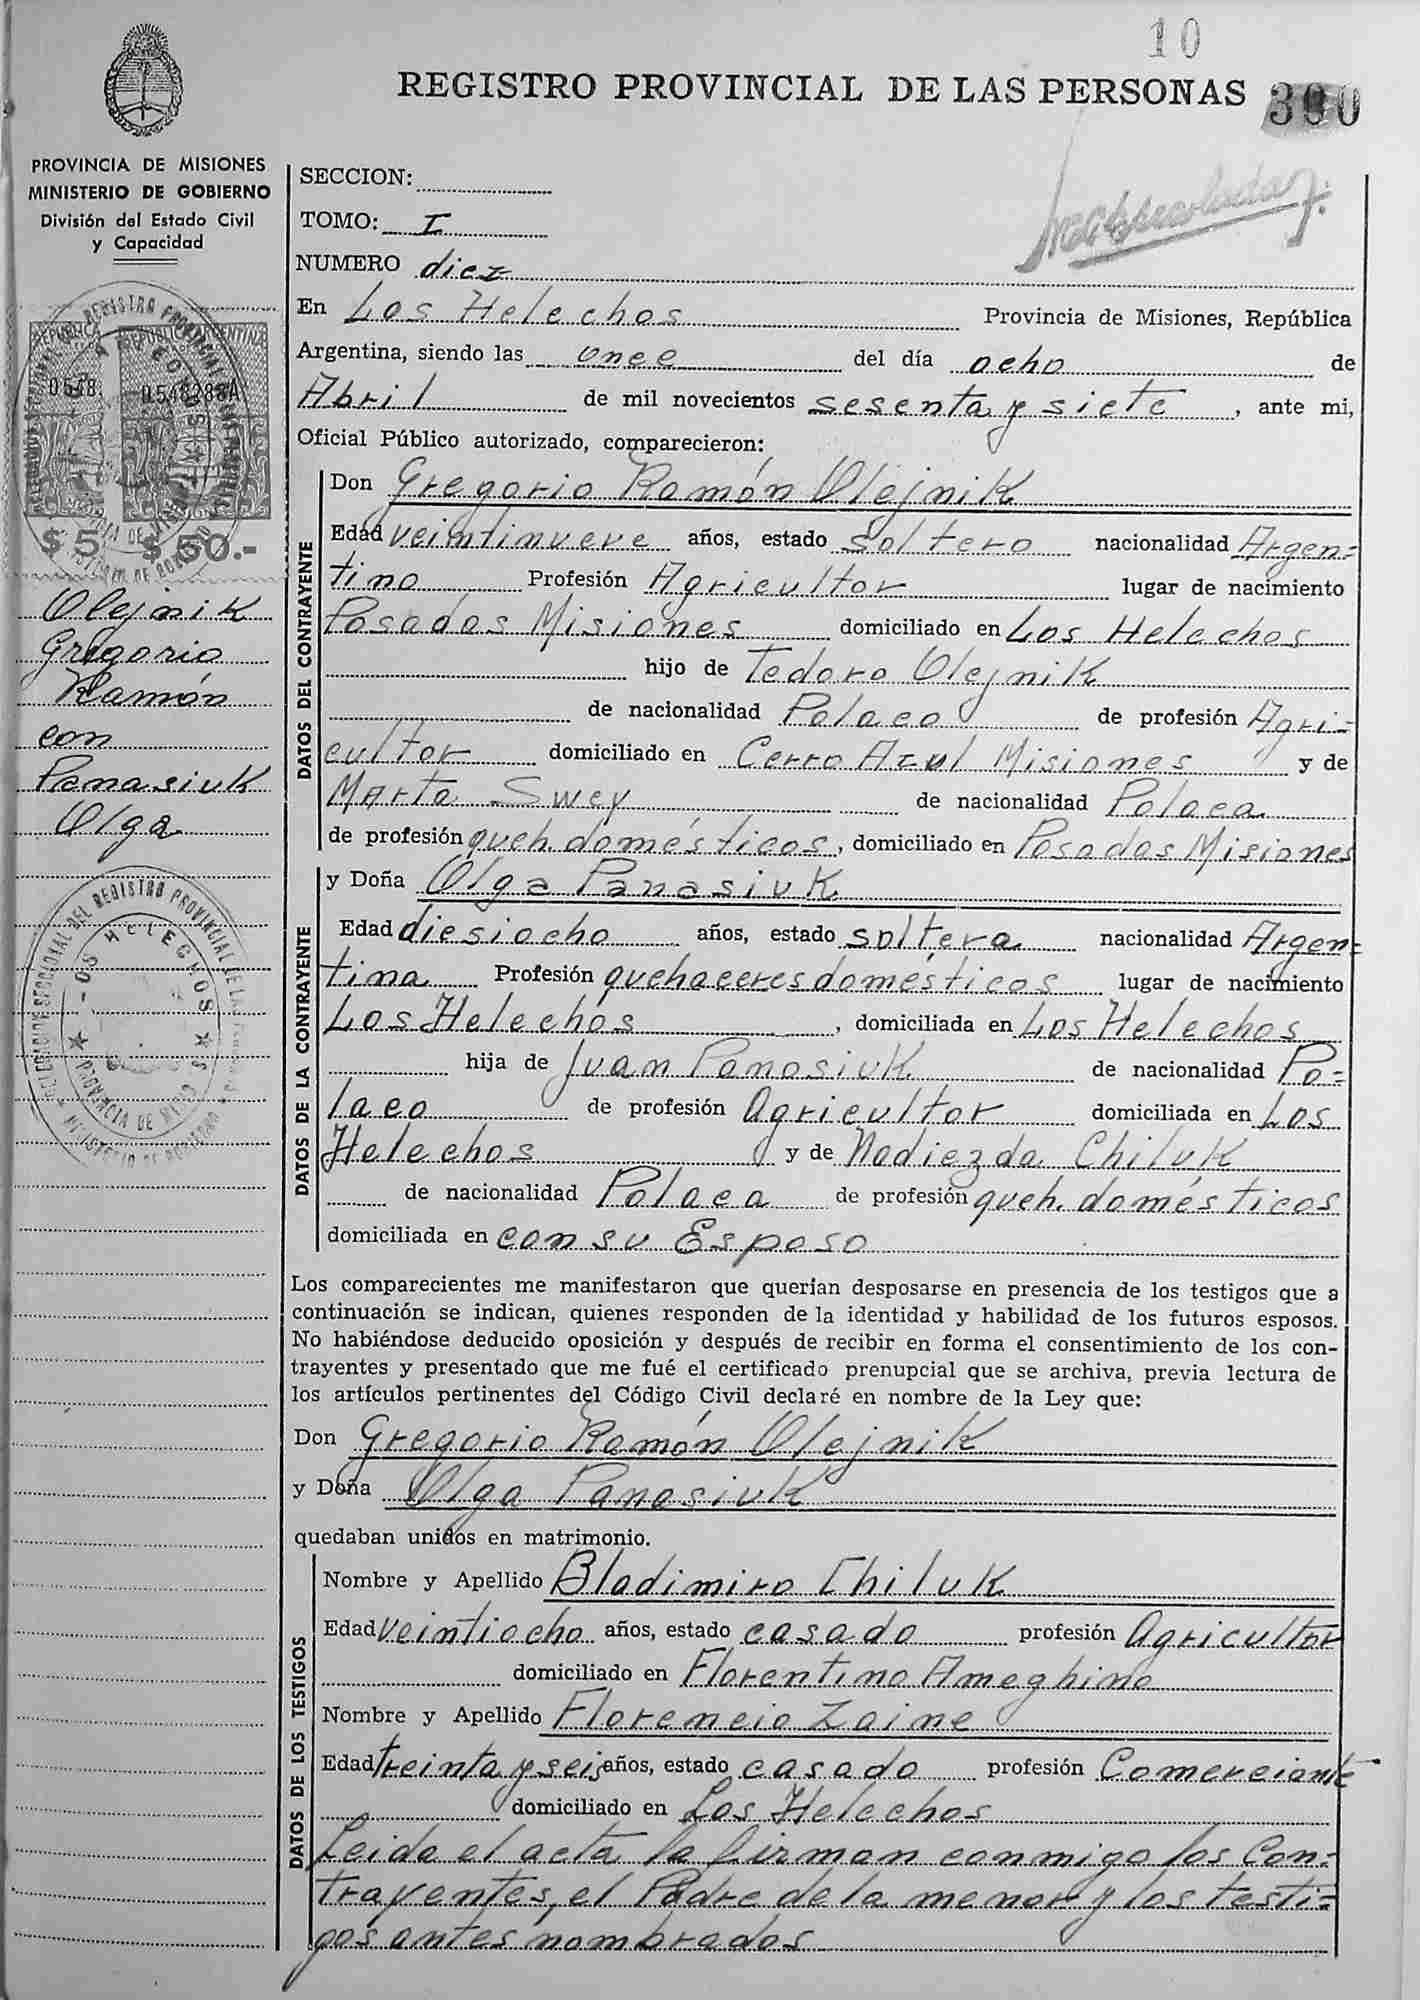 10
REGISTRO PROVINCIAL DE LAS PERSONAS 390
PROVINCIA DE MISIONES
MINISTERIO DE GOBIERNO
División del Estado Civil
y Capacidad
SECCION:
TOMO: I
NUMERO diez
En Los Helechos Provincia de Misiones, República
Argentina, siendo las once del día ocho de
Abril de mil novecientos sesenta y siete, ante mi,
Oficial Público autorizado, comparecieron:
DATOS DEL CONTRAYENTE
Don Gregorio Ramón Olejnik
Edad veintinueve años, estado soltero nacionalidad Argen=
tino Profesión Agricultor lugar de nacimiento
Posadas Misiones domiciliado en Los Helechos
hijo de Tedoro Olejnik
de nacionalidad Polaco de profesión Agri=
cultor domiciliado en Cerro Azul Misiones y de
Marta Swey de nacionalidad Polaca
de profesión queh. domésticos, domiciliado en Posadas Misiones
DATOS DE LA CONTRAYENTE
y Doña Olga Panasiuk
Edad diesiocho años, estado soltera nacionalidad Argen=
tina Profesión quehaceres domésticos lugar de nacimiento
Los Helechos, domiciliada en Los Helechos
hija de Juan Panasiuk de nacionalidad Po=
laco de profesión Agricultor domiciliada en Los
Helechos y de Nadiezda Chiluk
de nacionalidad Polaca de profesión queh. domésticos
domiciliada en con su Esposo
Los comparecientes me manifestaron que querían desposarse en presencia de los testigos que a
continuación se indican, quienes responden de la identidad y habilidad de los futuros esposos.
No habiéndose deducido oposición y después de recibir en forma el consentimiento de los con-
trayentes y presentado que me fué el certificado prenupcial que se archiva, previa lectura de
los artículos pertinentes del Código Civil declaré en nombre de la Ley que:
Don Gregorio Ramón Olejnik
y Doña Olga Panasiuk
quedaban unidos en matrimonio.
DATOS DE LOS TESTIGOS
Nombre y Apellido Bladimiro Chiluk
Edad veintiocho años, estado casado profesión Agricultor
domiciliado en Florentino Ameghino
Nombre y Apellido Florencio Zaine
Edad treinta y seis años, estado casado profesión Comerciante
domiciliado en Los Helechos
Leida el acta la firman conmigo los Con=
trayentes, el Padre de la menor y los testi=
gos antes nombrados
0548288A
$ 5 $ 50.-
Olejnik
Gregorio
Ramón
con
Panasiuk
Olga
LOS HELECHOS
PROVINCIA DE